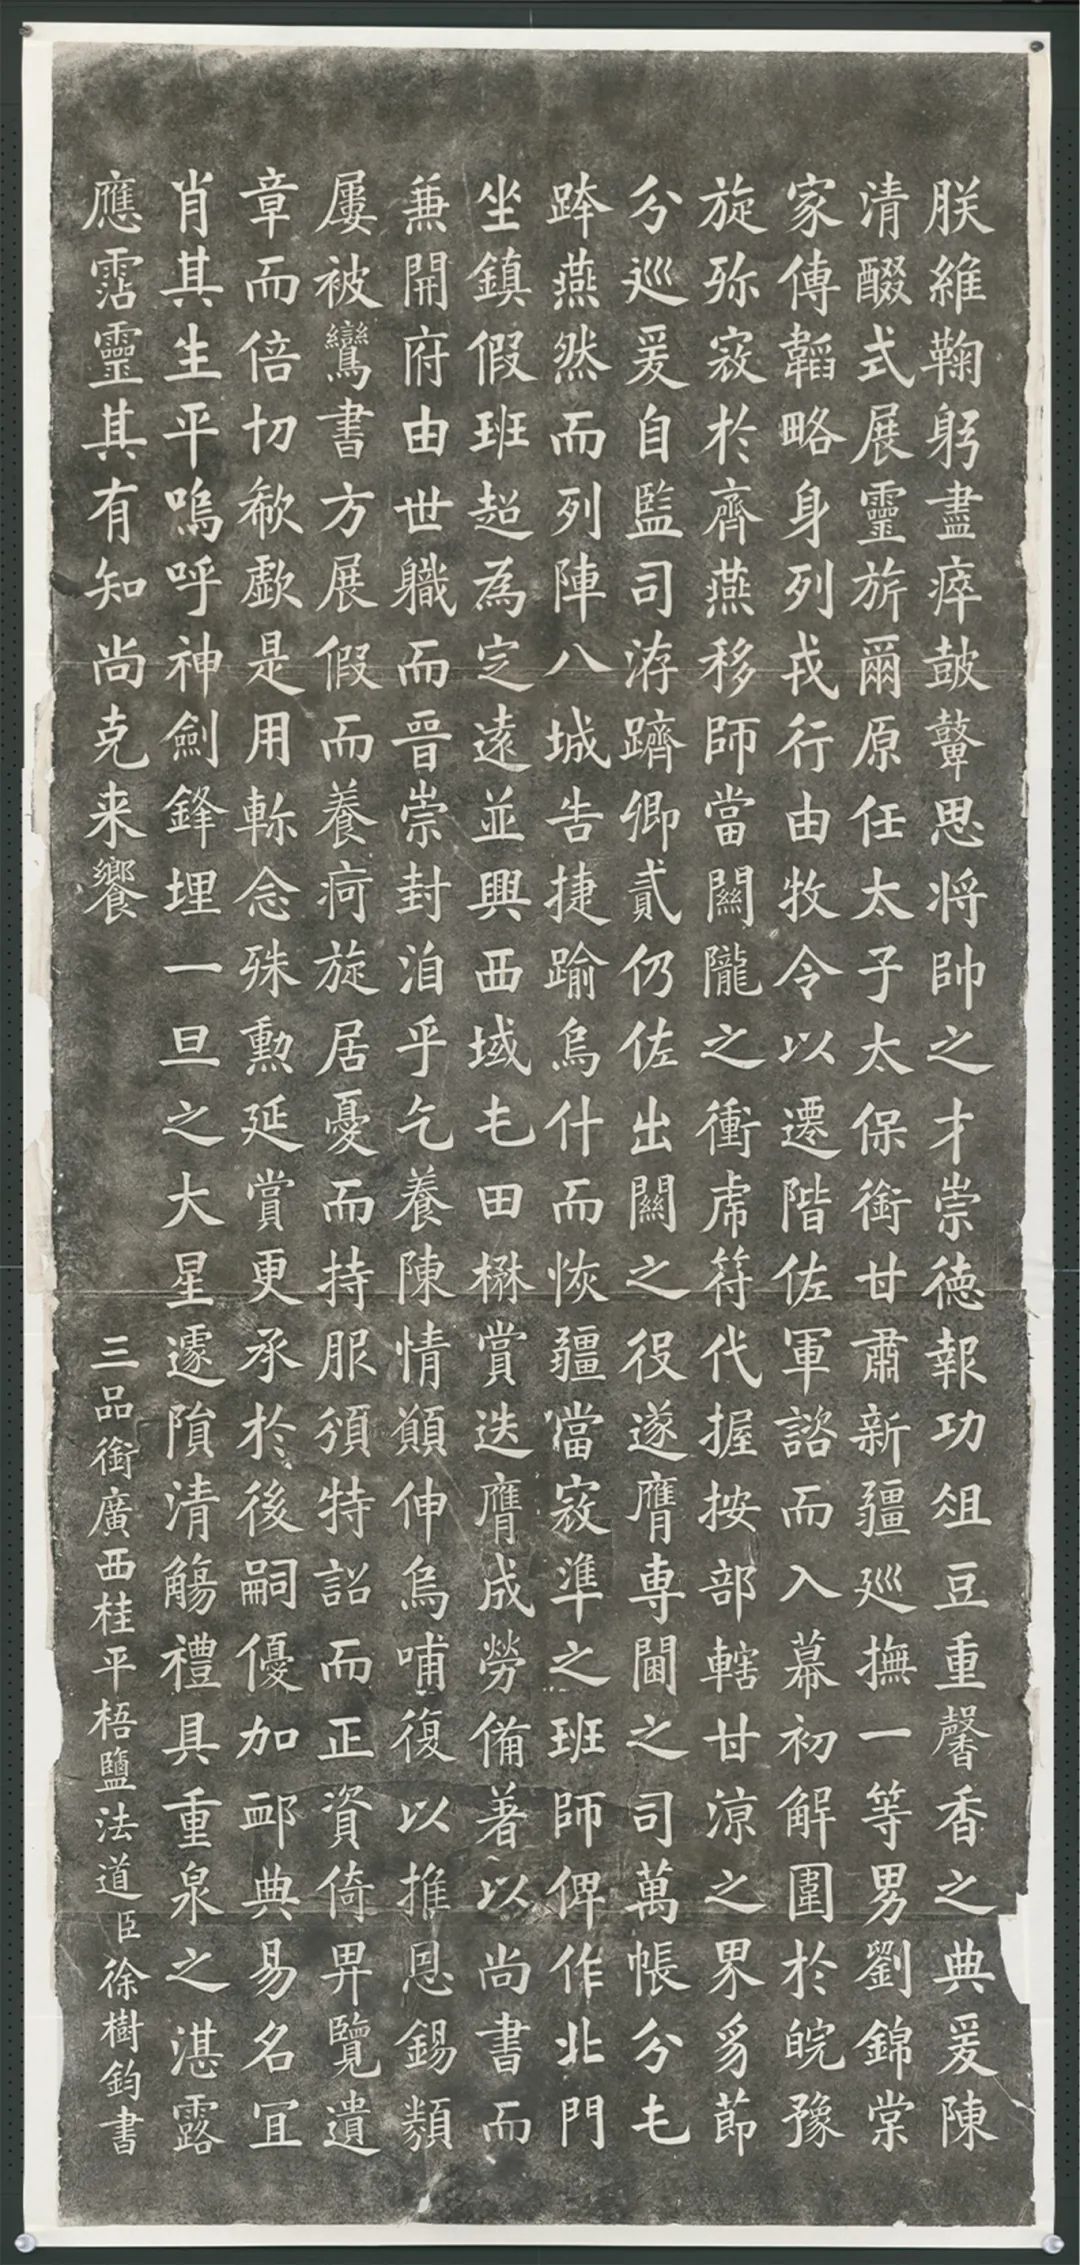 朕維鞠躬盡瘁鼓鼙思将帥之才崇德報功俎豆重馨香之典爰陳
清醊式展靈旂爾原任太子太保銜甘肅新疆巡撫一等男劉錦棠
家傳韜略身列戎行由牧令以遷階佐軍諮而入幕初解圍於皖豫
旋弥寇於齊燕移師當關隴之衝虎符代握按部轄甘涼之界豸節
分巡爰自監司洊躋卿貳仍佐出關之役遂膺専閫之司萬帳分屯
跸燕然而列陣八城告捷踰烏什而恢疆當寇準之班師俾作北門
坐鎮假班超為定遠並興西域屯田楙賞迭膺成勞備著以尚書而
兼開府由世職而晉崇封洎乎乞養陳情顛伸烏哺復以推恩錫類
屢被鸞書方展假而養疴旋居憂而持服頒特詔而正資倚畀覽遺
章而倍切欷歔是用軫念殊勲延賞更承於後嗣優加邺典易名宜
肖其生平嗚呼神劍鋒埋一旦之大星遽隕清觴禮具重泉之湛露
應霑靈其有知尚克来饗
三品銜廣西桂平梧鹽法道臣徐樹鈞書